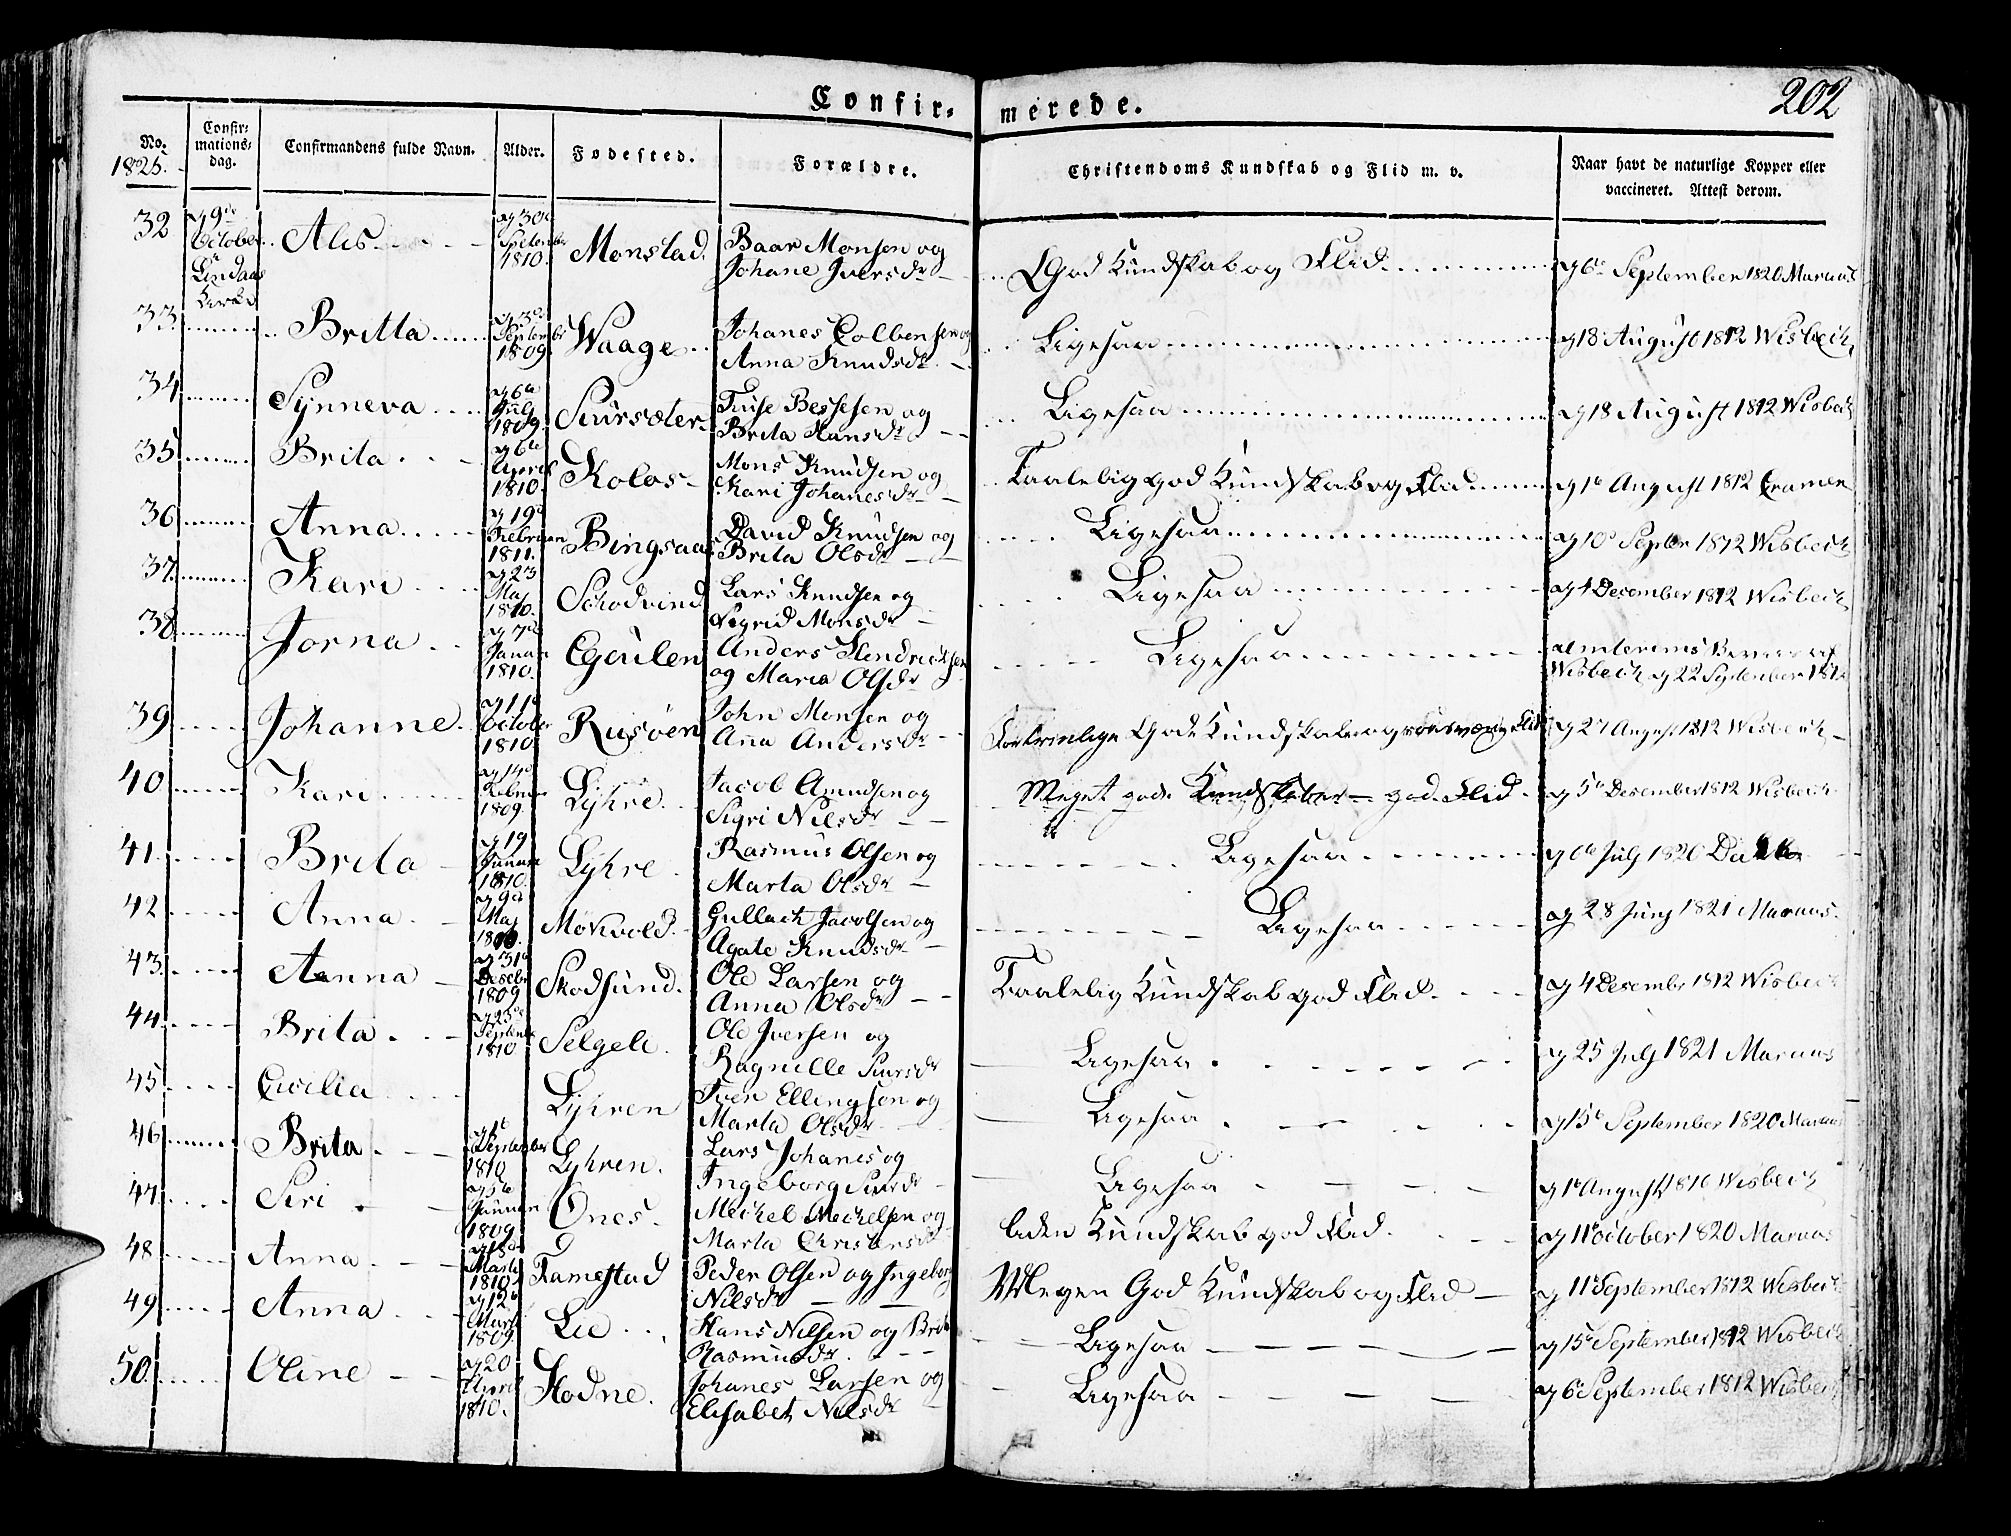 Confir-merede.
202
No.
1825.
Confir-
mations-
dag.
Confirmandens fulde Navn.
Alder.
Fødested.
Forældre.
Christendoms Kundskab og Flid m. v.
Naar havt de naturlige Kopper eller
vaccineret. Attest derom.
32 October Lindaas Kirke Alis 1810. Monstad. Baar Monsen og
Johane Iversdr God Kundskab og Flid. September 1820 Maraus
33 Britta September 1809. Waage Johanes Colbensen og
Anna Knudsdr Ligesaa 18 August 1812 Wisbech
34 Synneva July 1809. Siursæter Bessesen og
Brita Hansdr Ligesaa 18 August 1812 Wisbech
35 Brita April 1810. Kolas Mons Knudsen og
Kari Johanesdr Taalelig god Kundskab og Flid August 1812 Cramer
36 Anna 19 Februar 1811. Bingsaa David Knudsen og
Brita Olsdr Ligesaa 10 Septbr 1812 Wisbech
37 Kari 23 Maj 1810. Schodvind Lars Knudsen og
Sigrid Monsdr Ligesaa 4 December 1812 Wisbech
38 Jorna Januar 1810. Anders Hendricksen
og Maria Olsdr Ligesaa
Wisbech 22 September 1812
39 Johanne 11 October 1810. Rusøen John Monsen og
Anna Andersdr gode Kundskaber og Flid 27 August 1812 Wisbech
40 Kari 1809. Lyhre Jacob Amundsen og
Sigri Nilsdr Meget gode Kundskaber god Flid 5 December 1812 Wisbech
41 Brita 19 Januar 1810. Lyhre Rasmus Olsen og
Marta Olsdr Ligesaa July 1820
42 Anna Maj Mokvold. Gullach Jacobsen og
Agate Knudsdr Ligesaa 28 Juny 1821 Maraus.
43 Anna 31 1809 Skodsund. Ole Larsen og
Anna Olsdr Taalelig Kundskab god Flid. 4 Desember 1812 Wisbech
44 Brita 23 1810 Selgeli. Ole Iversen og
Ragnille Siursdr Ligesaa 25 July 1821 Maraus
45 Cicilia Lyhren Iver Ellingsen og
Marta Olsdr Ligesaa 15 September 1820 Maraus
46 Brita September 1810 Lyhren. Lars Johanes og
Ingeborg Siursdr Ligesaa August 1810 Wisbech
47 Siri Januar 1809 Ones. Meichel Meichelsen og
Marta liden Kundskab god Flid. 11 October 1820 Maraus
48 Anna Marts 1810. Famestad Peder Olsen og Ingeborg
Nilsdr Megen God Kundskab og Flid 11 September 1812 Wisbech
49 Anna 12 Marts 1809 Lie Hans Nilsen og Brita
Rasmusdr. Ligesaa 15 September 1812 Wisbech
50 Oline 20 April 1810. Hodne. Johanes Larsen og
Elisabet Nilsdr Ligesaa 6 September 1812 Wisbech